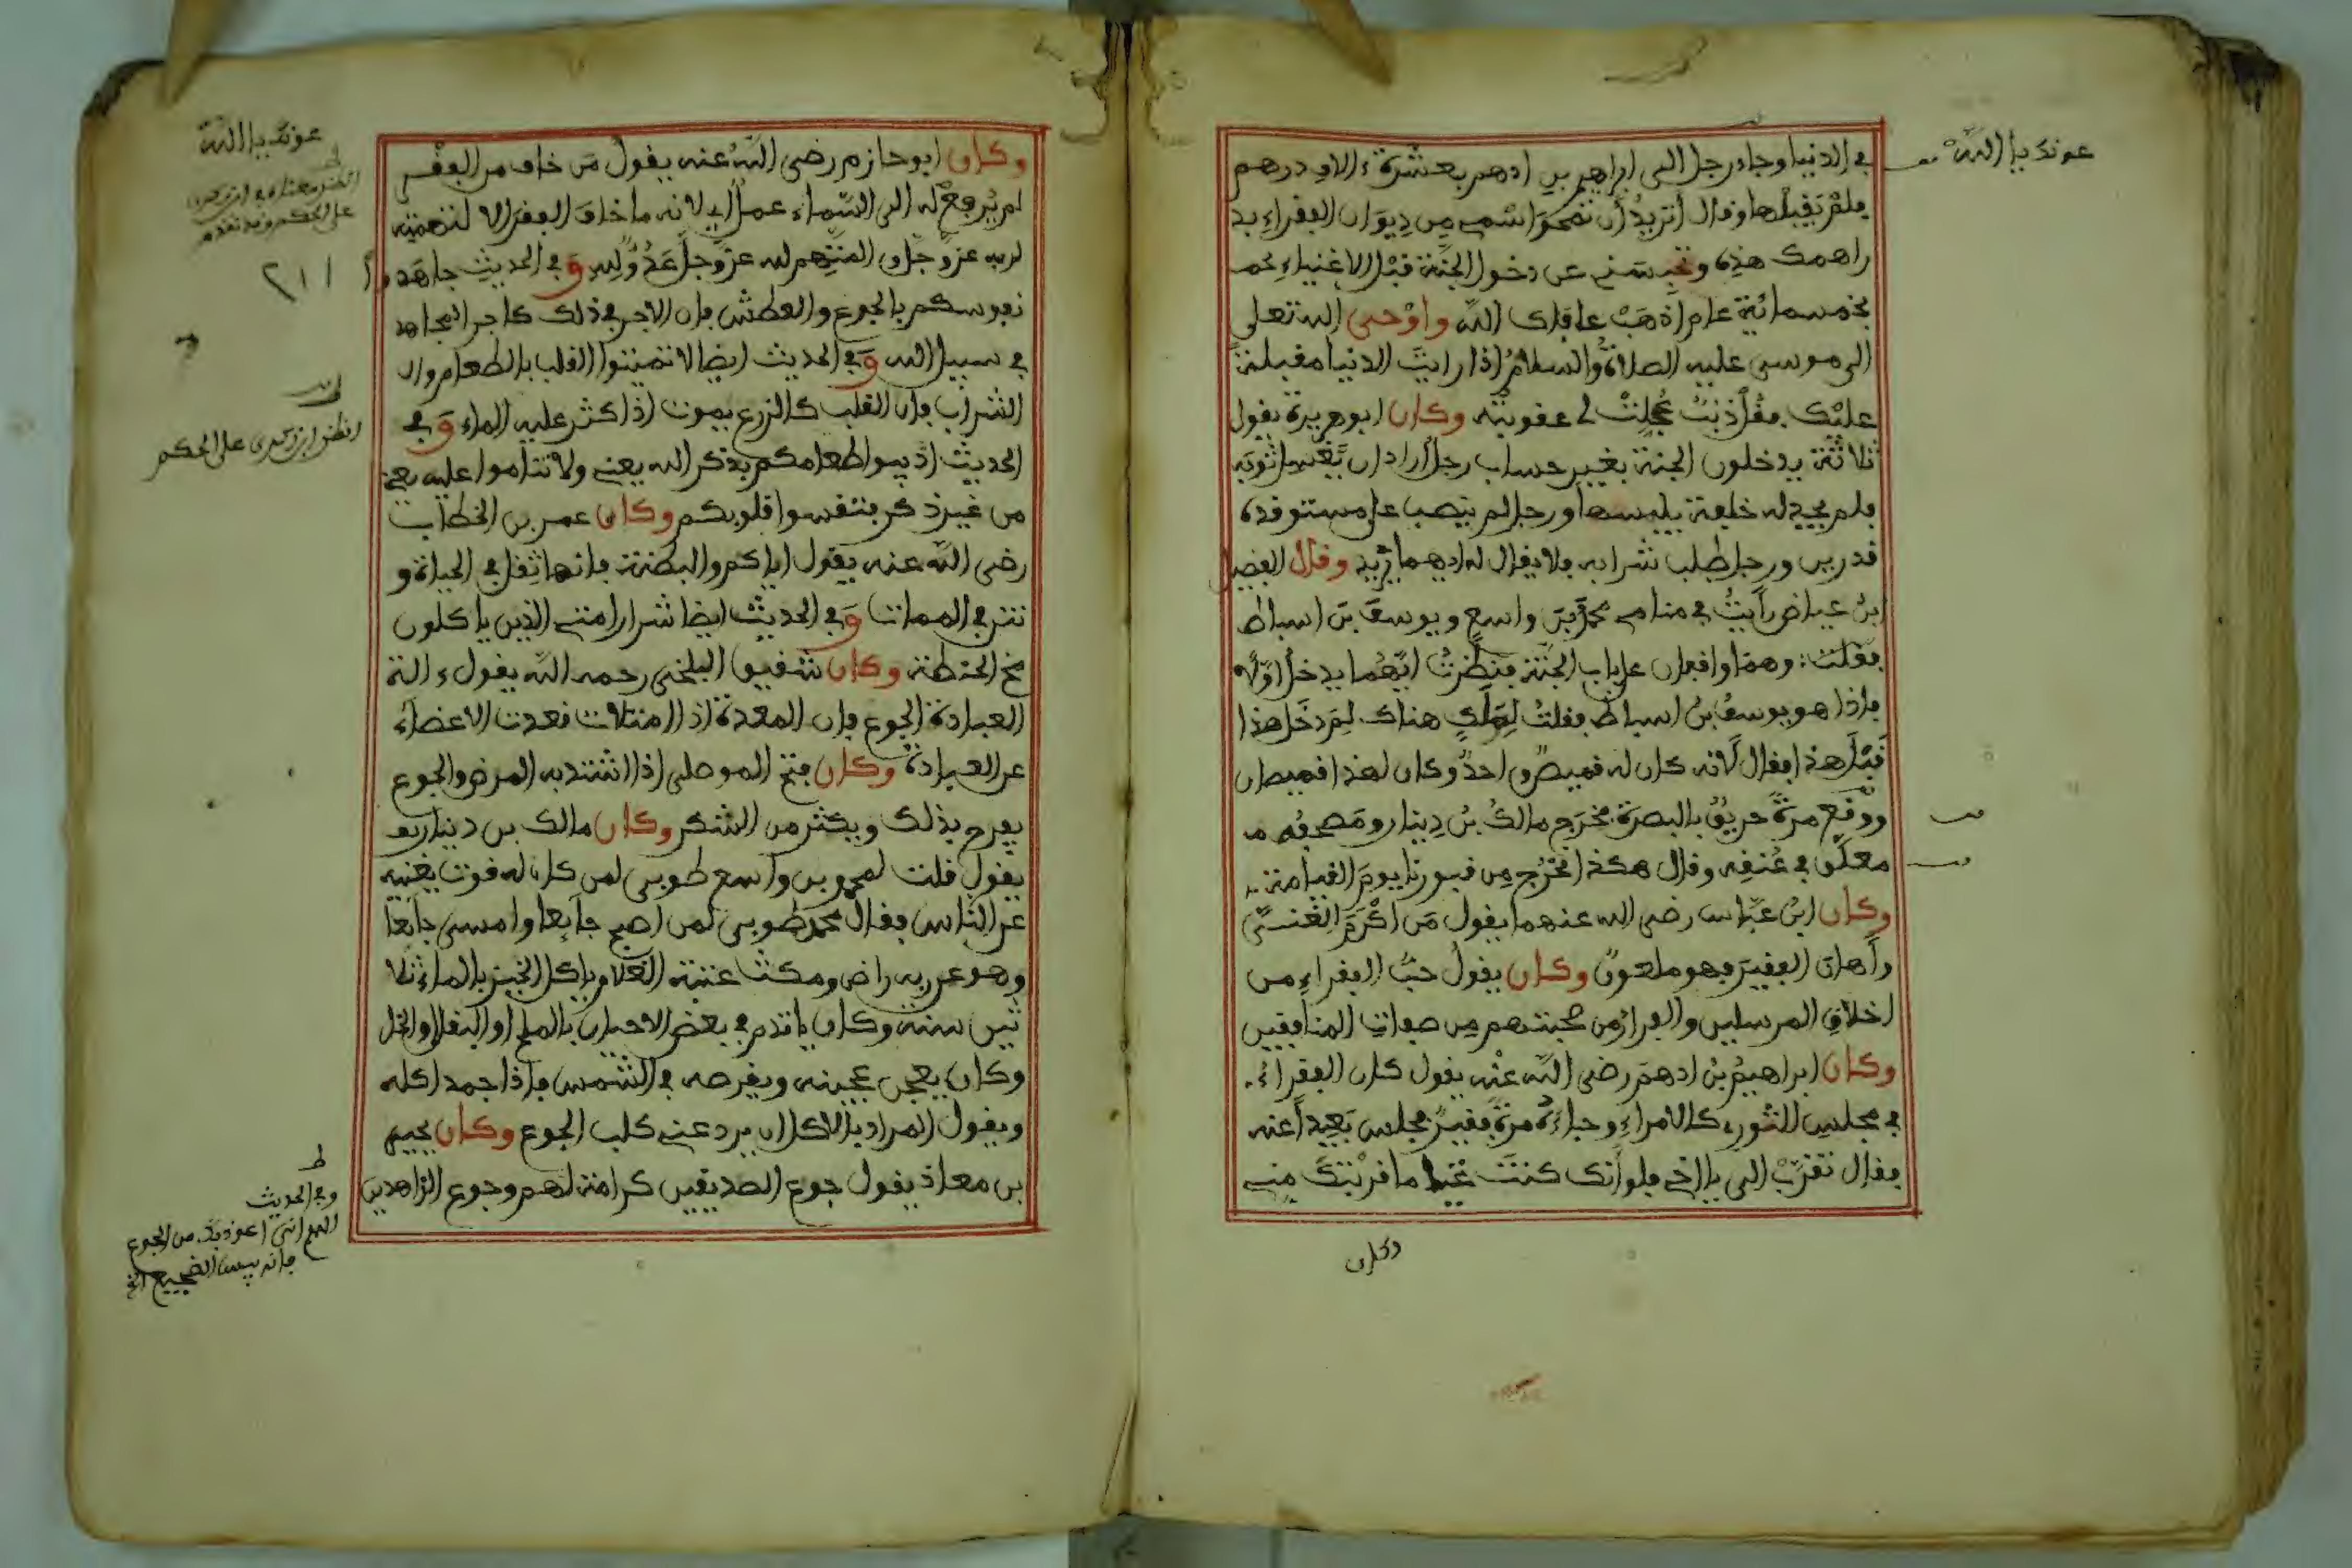 في الدنيا وجاء رجل الى ابراهيم بن ادهم بعشرة ءالاف درهم
فلم يقبلها وقال أتريد أن تمحو اسمي من ديوان الفقراء بد
راهمك هذه وتحبسني عن دخول الجنة قبل الاغنياء بخمـ
بخمسمائة عام اذهب عافاك الله واوحى الله تعلى
الى موسى عليه الصلاة والسلام اذا رايت الدنيا مقبلة
عليك فقل ذنب عجلت لي عقوبته وكان ابو هريرة يقول
ثلاثة يدخلون الجنة بغير حساب رجل أراد ان يغسل ثوبه
فلم يجد له خلعة يلبسها ورجل لم ينصب على مستوقده
قدرين ورجل طلب شرابه فلا يقال له ايهما تريد وقال الفضيل
ابن عياض رأيت في منامي محمد بن واسع ويوسف بن اسباط
فقلت: وهما واقفان على باب الجنة فنظرت ايهما يدخل اولا
فاذا هو يوسف بن اسباط فقلت لملك هناك لم دخل هذا
قبل هذا فقال لانه كان له قميص واحد وكان لهذا قميصان
ووقع مرة حريق بالبصرة فخرج مالك بن دينار ومصحفه مـ
معلق في عنقه وقال هكذا نخرج من قبورنا يوم القيامة
وكان ابن عباس رضي الله عنهما يقول من اكرم الغني
وأهان الفقير فهو ملعون وكان يقول حب الفقراء من
اخلاق المرسلين والفرار من صحبتهم من صفات المنافقين
وكان ابراهيم بن ادهم رضي الله عنه يقول كان الفقراء
في مجلس الثوري كالامراء وجاءه مرة فقير فجلس بعيدا عنه
فقال تقرب الي يا اخي فلو أنك كنت غنيا ما قربتك مني
وكان
عونك يا الله
وكان ابو حازم رضي الله عنه يقول من خاف من الفقر
لم يرفع له الى السماء عمل اي لانه ما خاف الفقر الا لتهمته
لربه عز وجل والمتهم لله عز وجل عدو لله وفي الحديث جاهدوا
نفوسكم بالجوع والعطش فان الاجر في ذلك كاجر المجاهد
في سبيل الله وفي الحديث ايضا لا تميتوا القلب بالطعام والـ
الشراب فان القلب كالزرع يموت اذا كثر عليه الماء وفي
الحديث اذيبوا طعامكم بذكر الله يعني ولا تناموا عليه يعني
من غير ذكر فتقسوا قلوبكم وكان عمر بن الخطاب
رضي الله عنه يقول اياكم والبطنة فانها ثقل في الحياة و
نتن في الممات وفي الحديث ايضا شرار امتي الذين ياكلون
مخ الحنطة وكان شقيق البلخي رحمه الله يقول ءالة
العبادة الجوع فان المعدة اذا امتلات قعدت الاعضاء
عن العبادة وكان فتح الموصلي اذا اشتد به المرض والجوع
يفرح بذلك ويكثر من الشكر وكان مالك بن دينار يقـ
يقول قلت لمحمد بن واسع طوبى لمن كان له قوت يغنيه
عن الناس فقال محمد طوبى لمن اصبح جائعا وامسى جائعا
وهو عن ربه راض ومكث عتبة الغلام ياكل الخبز بالماء ثلا
ثين سنة وكان ياتدم في بعض الاحيان بالملح او البقل او الخل
وكان يعجن عجينه ويقرصه في الشمس فاذا جمد اكله
ويقول المراد بالاكل ان يرد عني كلب الجوع وكان يحيى
بن معاذ يقول جوع الصديقين كرامة لهم وجوع الزاهدين
عونك يا الله
على الحكم وقد تقدم
٢١١
انظر ابن زكري على الحكم
ط
وفي الحديث
اللهم اني اعوذ بك من الجوع
فانه بيس الضجيع الخ